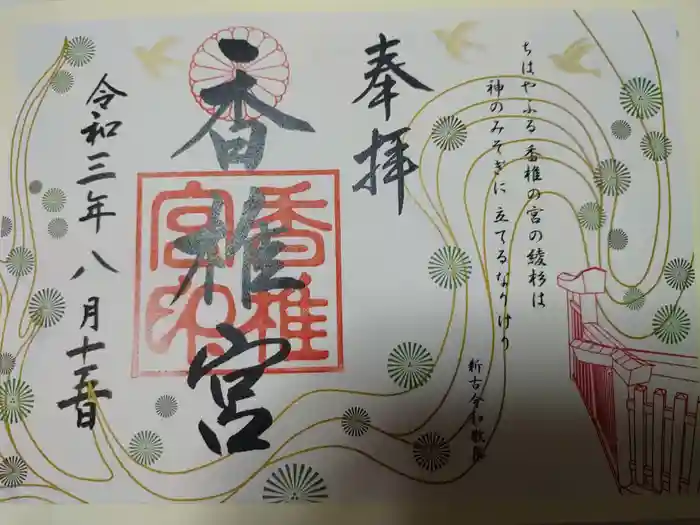 奉拝
ちはやふる 香椎の宮の綾杉は
神のみそぎに 立てるなりけり
新古今和歌集
香椎宮
香椎
宮印
令和三年八月十三日